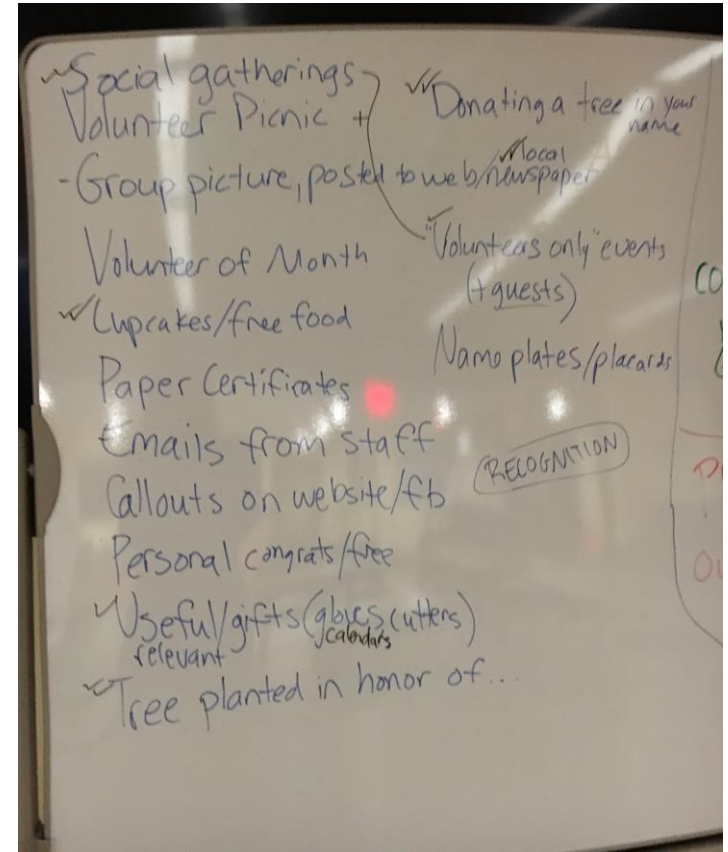 Social gatherings
Volunteer Picnic +
- Group picture, posted to web/newspaper
local
Volunteer of Month
Cupcakes/free food
Paper Certificates
Emails from staff
Callouts on website/fb
Personal congrats/free
Useful/gifts (gloves, cutters)
relevant
calendars
Tree planted in honor of...
Donating a tree in your
name
"Volunteers only" events
(+ guests)
Name plates/placards
RECOGNITION
CO